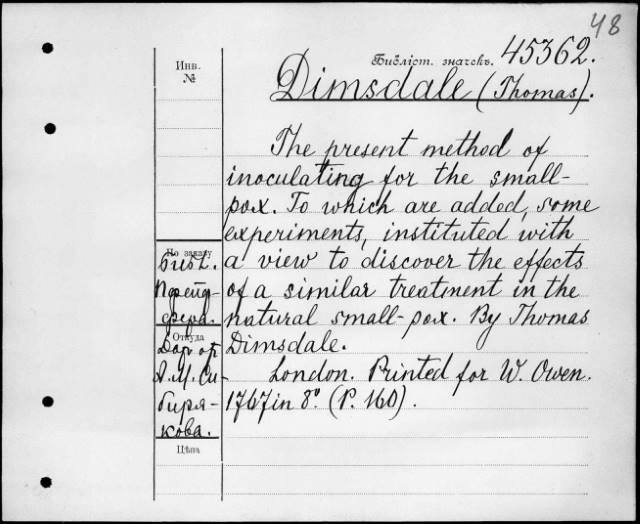 48
Библіот. значекъ. 45362.
Инв.
№
Dimsdale (Thomas).
The present method of
inoculating for the small-
pox. To which are added, some
experiments, instituted with
a view to discover the effects
of a similar treatment in the
natural small-pox. By Thomas
Dimsdale.
London. Printed for W. Owen.
1767 in 8º. (P. 160).
По заказу
Библ.
Пфейф-
фера.
Откуда
Дар от
А. М. Си-
биря-
кова.
Цѣна